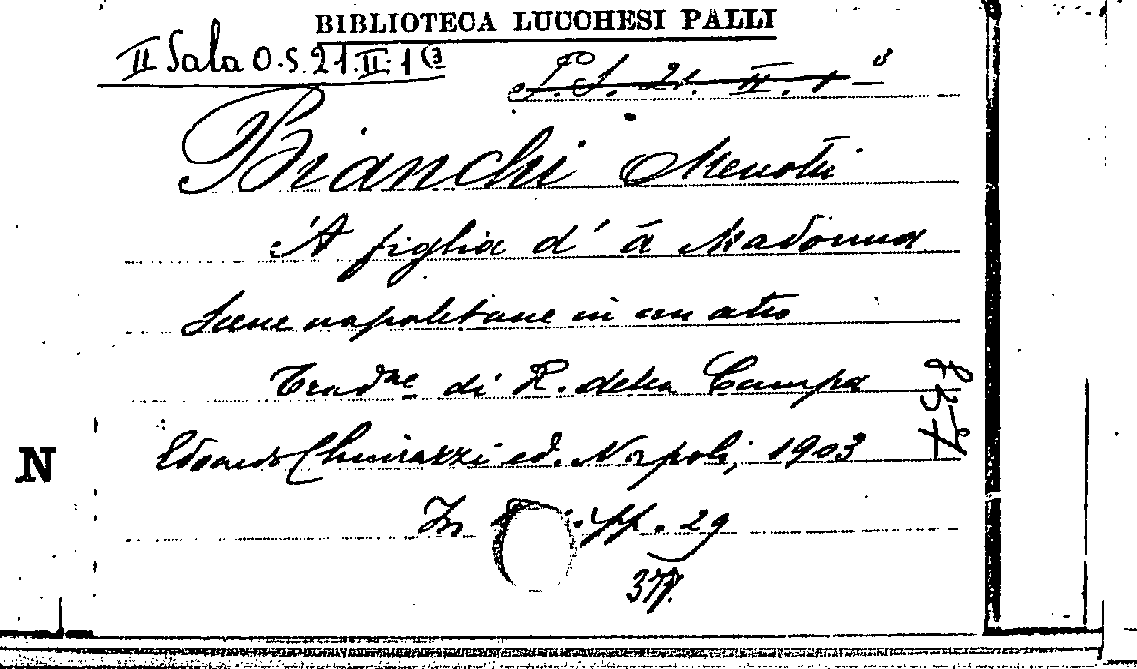 BIBLIOTECA LUCCHESI PALLI
II Sala O.S. 21.II.1(3
P. S. 21. II. 1 3
Bianchi Menotti
'A figlia d' 'a Madonna
Scene napoletane in un atto
Trad.ne di R. della Campa
Edoardo Chiurazzi ed. Napoli, 1903
N
In pp. 29
377.